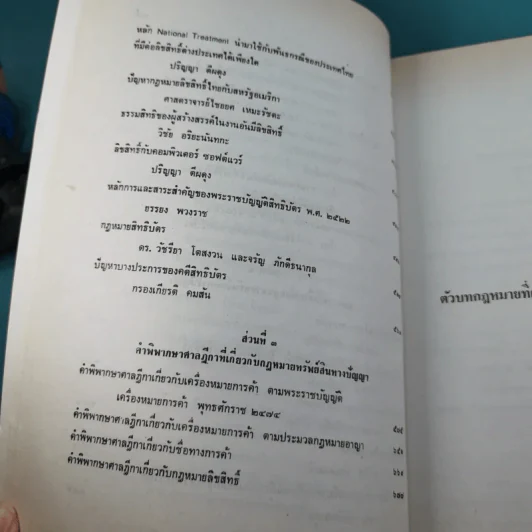 หลัก National Treatment นำมาใช้กับพันธกรณีของประเทศไทย
ที่มีต่อลิขสิทธิ์ต่างประเทศได้เพียงใด
ปริญญา ดีผดุง
ปัญหากฎหมายลิขสิทธิ์ไทยกับสหรัฐอเมริกา
ศาสตราจารย์ไชยยศ เหมะรัชตะ
ธรรมสิทธิของผู้สร้างสรรค์ในงานอันมีลิขสิทธิ์
วิชัย อริยะนันทกะ
ลิขสิทธิ์กับคอมพิวเตอร์ ซอฟต์แวร์
ปริญญา ดีผดุง
หลักการและสาระสำคัญของพระราชบัญญัติสิทธิบัตร พ.ศ. ๒๕๒๒
ยรรยง พวงราช
กฎหมายสิทธิบัตร
ดร. วัชรียา โตสงวน และจรัญ ภักดีธนากุล
ปัญหาบางประการของคดีสิทธิบัตร
กรองเกียรติ คมสัน
ส่วนที่ ๓
คำพิพากษาศาลฎีกาที่เกี่ยวกับกฎหมายทรัพย์สินทางปัญญา
คำพิพากษาศาลฎีกาเกี่ยวกับเครื่องหมายการค้า ตามพระราชบัญญัติ
เครื่องหมายการค้า พุทธศักราช ๒๔๗๔
คำพิพากษาศาลฎีกาเกี่ยวกับเครื่องหมายการค้า ตามประมวลกฎหมายอาญา
คำพิพากษาศาลฎีกาเกี่ยวกับชื่อทางการค้า
คำพิพากษาศาลฎีกาเกี่ยวกับกฎหมายลิขสิทธิ์